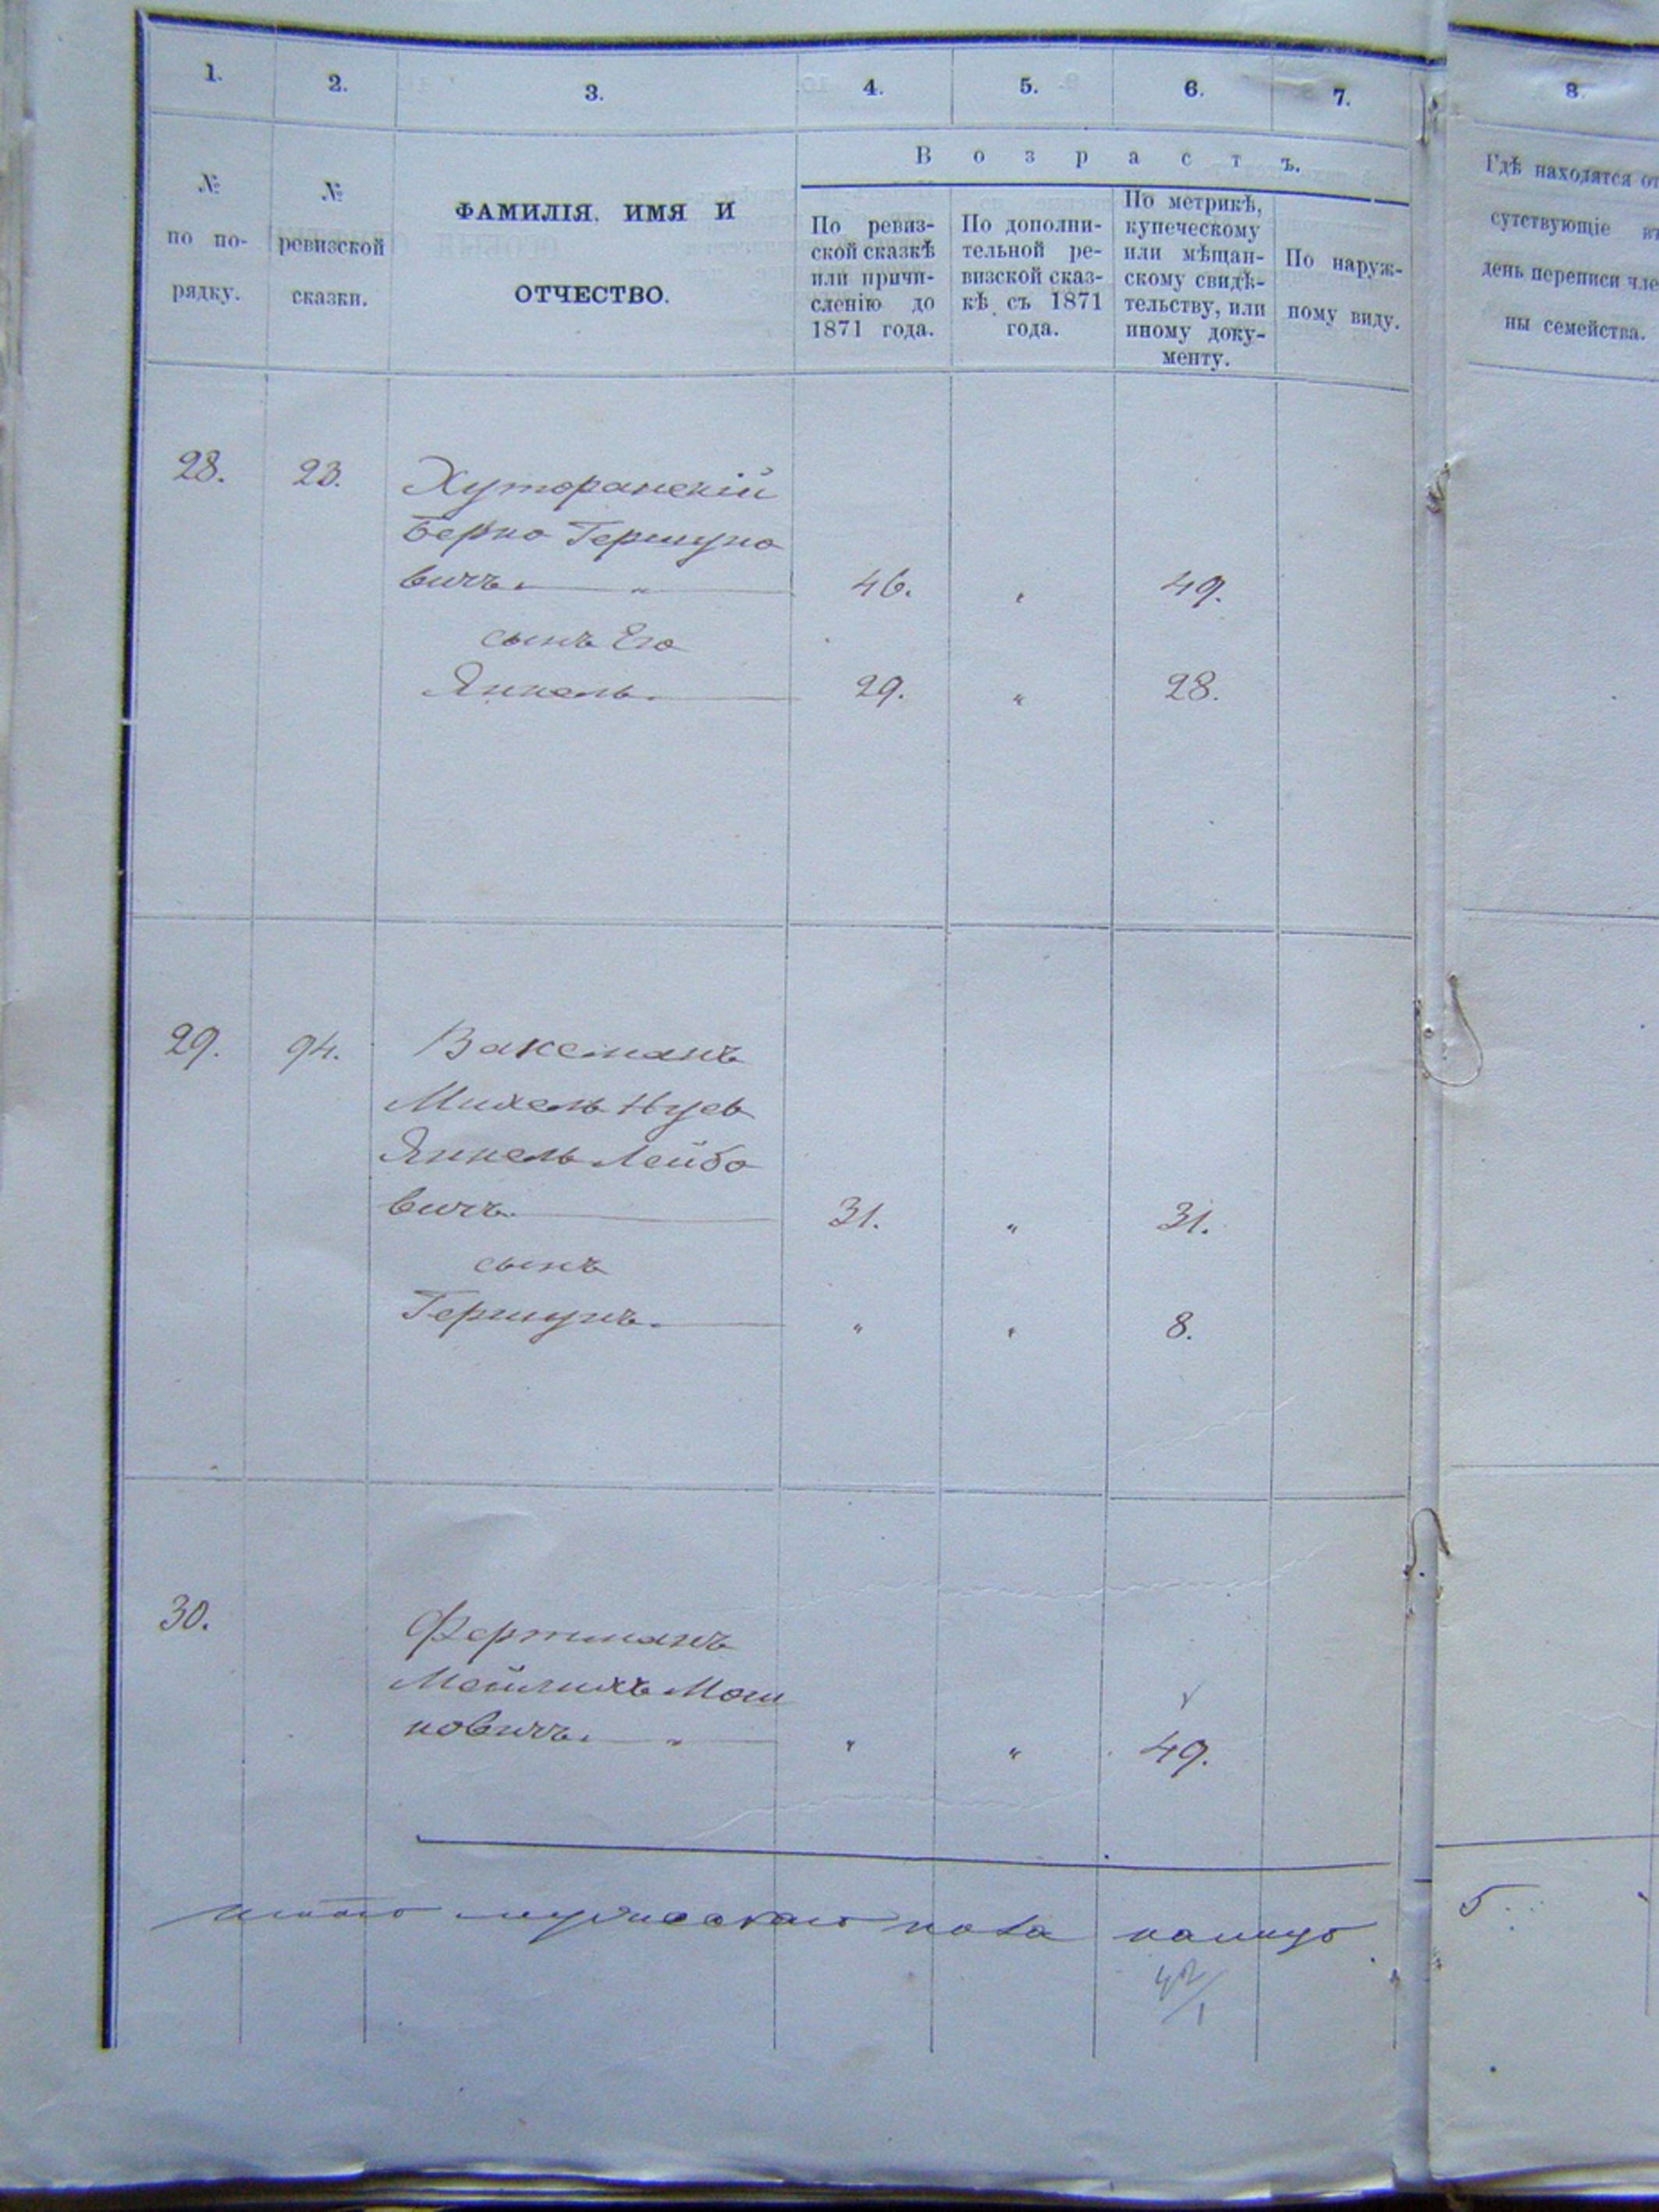 1. 2. 3. 4. 5. 6. 7. 8.
В о з р а с т ъ.
№ по по- рядку.
№ ревизской сказки.
ФАМИЛІЯ, ИМЯ И
ОТЧЕСТВО.
По ревиз-
ской сказкѣ
или причи-
сленію до
1871 года.
По дополни-
тельной ре-
визской сказ-
кѣ съ 1871
года.
По метрикѣ,
купеческому
или мѣщан-
скому свидѣ-
тельству, или
иному доку-
менту.
По наруж-
ному виду.
Гдѣ находятся от
сутствующіе въ
день переписи чле
ны семейства.
28. 23. Хуторанскій
Берко Гершуно
вичъ. " 46. " 49.
сынъ Его
Янкель. 29. " 28.
29. 94. Ваксманъ
Михель Нусь
Янкель Лейбо
вичъ. 31. " 31.
сынъ
Гершунъ. " " 8.
30. Фертманъ
Мейлихъ Мош
ковичъ. " " " 49.
итого мужескаго пола налицо 5